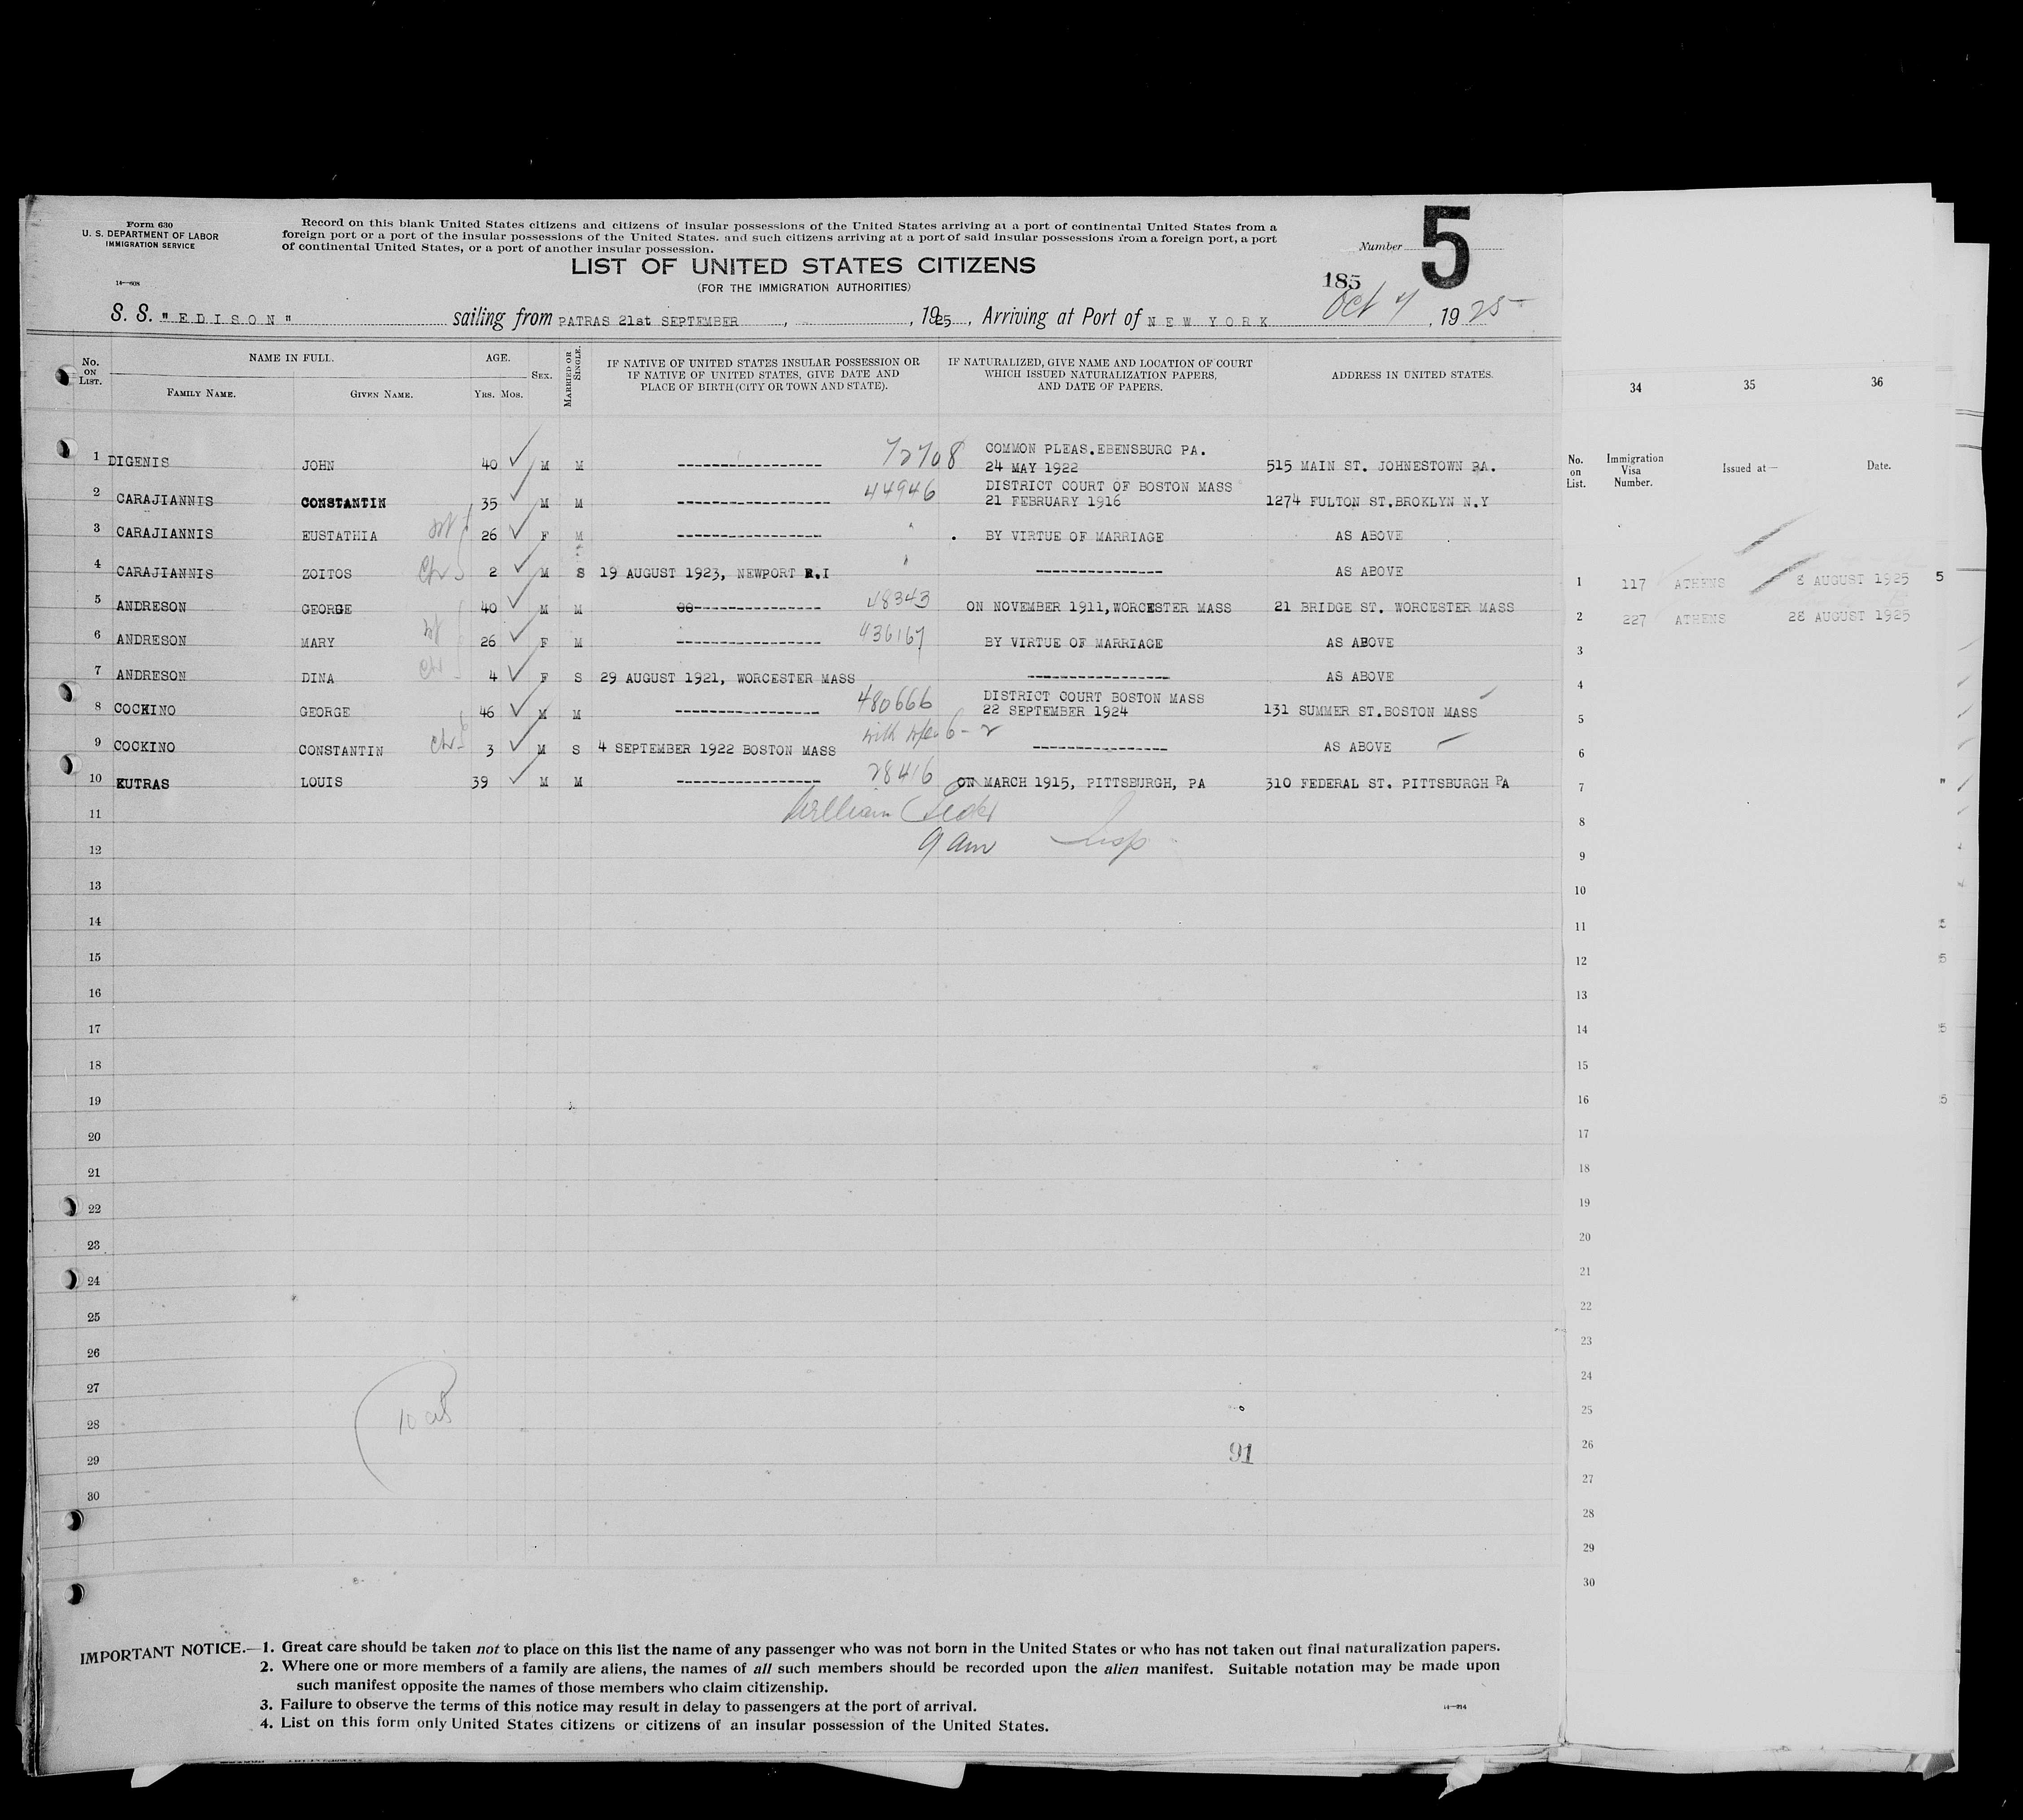 Form 630
U. S. DEPARTMENT OF LABOR
IMMIGRATION SERVICE
14—608
Record on this blank United States citizens and citizens of insular possessions of the United States arriving at a port of continental United States from a
foreign port or a port of the insular possessions of the United States, and such citizens arriving at a port of said insular possessions from a foreign port, a port
of continental United States, or a port of another insular possession.
Number 5
LIST OF UNITED STATES CITIZENS
(FOR THE IMMIGRATION AUTHORITIES)
185
S. S. "EDISON" sailing from PATRAS 21st SEPTEMBER, 1925, Arriving at Port of NEW YORK Oct 4, 1925
No. ON LIST. NAME IN FULL. AGE. SEX. MARRIED OR SINGLE. IF NATIVE OF UNITED STATES INSULAR POSSESSION OR IF NATIVE OF UNITED STATES, GIVE DATE AND PLACE OF BIRTH (CITY OR TOWN AND STATE). IF NATURALIZED, GIVE NAME AND LOCATION OF COURT WHICH ISSUED NATURALIZATION PAPERS, AND DATE OF PAPERS. ADDRESS IN UNITED STATES.
FAMILY NAME. GIVEN NAME. YRS. MOS.
1 DIGENIS JOHN 40 M M ---------------- 72708 COMMON PLEAS.EBENSBURG PA. 24 MAY 1922 515 MAIN ST. JOHNESTOWN PA.
2 CARAJIANNIS CONSTANTIN 35 M M ---------------- 44946 DISTRICT COURT OF BOSTON MASS 21 FEBRUARY 1916 1274 FULTON ST.BROKLYN N.Y
3 CARAJIANNIS EUSTATHIA 26 F M ---------------- " BY VIRTUE OF MARRIAGE AS ABOVE
4 CARAJIANNIS ZOITOS 2 M S 19 AUGUST 1923, NEWPORT R.I ---------------- AS ABOVE
5 ANDRESON GEORGE 40 M M ---------------- 48343 ON NOVEMBER 1911, WORCESTER MASS 21 BRIDGE ST. WORCESTER MASS
6 ANDRESON MARY 26 F M ---------------- 436167 BY VIRTUE OF MARRIAGE AS ABOVE
7 ANDRESON DINA 4 F S 29 AUGUST 1921, WORCESTER MASS ---------------- AS ABOVE
8 COCKINO GEORGE 46 M M ---------------- 480666 DISTRICT COURT BOSTON MASS 22 SEPTEMBER 1924 131 SUMMER ST.BOSTON MASS
9 COCKINO CONSTANTIN 3 M S 4 SEPTEMBER 1922 BOSTON MASS ---------------- AS ABOVE
10 KUTRAS LOUIS 39 M M ---------------- 28416 ON MARCH 1915, PITTSBURGH, PA 310 FEDERAL ST. PITTSBURGH PA
11 William
12 9 am Insp
13
14
15
16
17
18
19
20
21
22
23
24
25
26
27
28
29 91
30
34 35 36
No. on List. Immigration Visa Number. Issued at— Date.
1 117 ATHENS 8 AUGUST 1925 5
2 227 ATHENS 28 AUGUST 1925
3
4
5
6
7 "
8
9
10
11
12
13
14
15
16
17
18
19
20
21
22
23
24
25
26
27
28
29
30
IMPORTANT NOTICE.—1. Great care should be taken not to place on this list the name of any passenger who was not born in the United States or who has not taken out final naturalization papers.
2. Where one or more members of a family are aliens, the names of all such members should be recorded upon the alien manifest. Suitable notation may be made upon
such manifest opposite the names of those members who claim citizenship.
3. Failure to observe the terms of this notice may result in delay to passengers at the port of arrival.
4. List on this form only United States citizens or citizens of an insular possession of the United States.
14—214